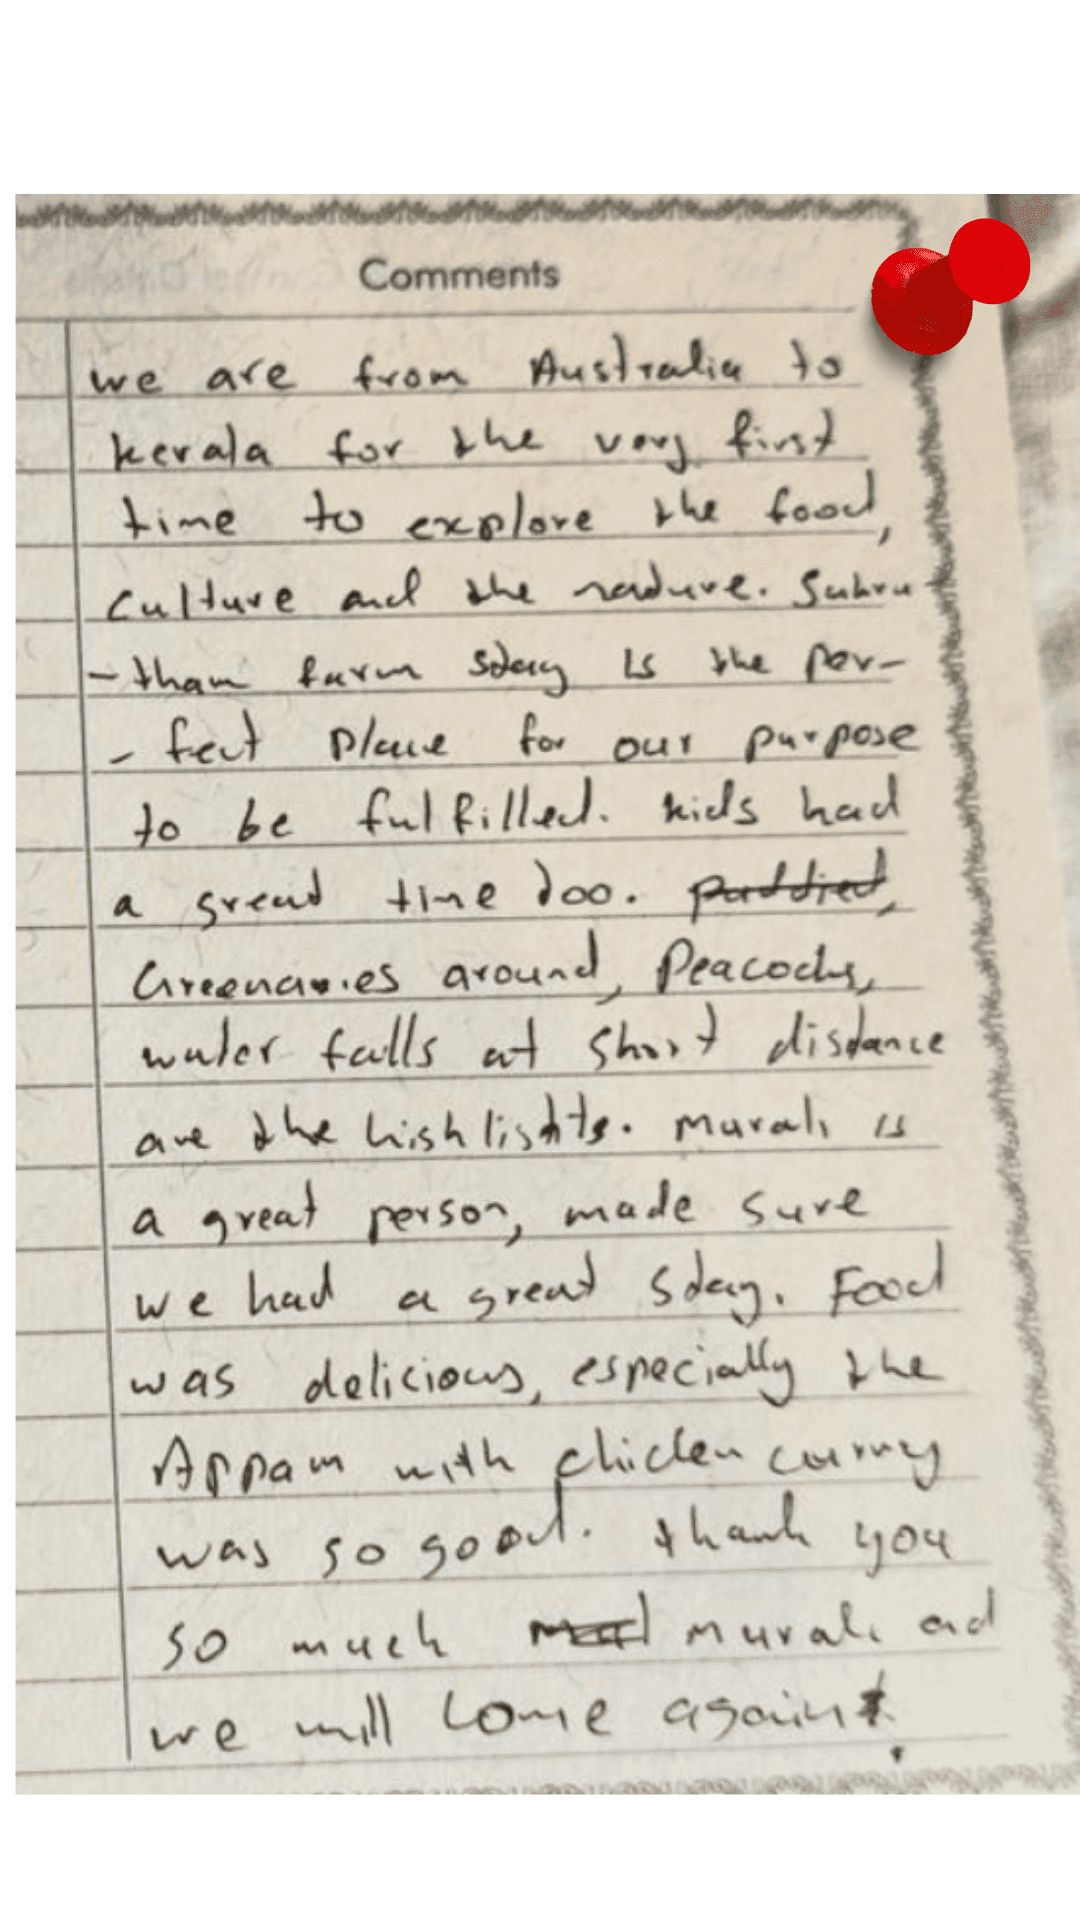 Comments
we are from Australia to
kerala for the very first
time to explore the food,
culture and the nature. Sukru
-tham farm stay is the per-
- fect place for our purpose
to be fulfilled. kids had
a great time too.
Greenaries around, Peacocks,
water falls at short distance
are the highlights. Murali is
a great person, made sure
we had a great stay. Food
was delicious, especially the
Appam with chicken curry
was so good. thank you
so much murali and
we will come again!